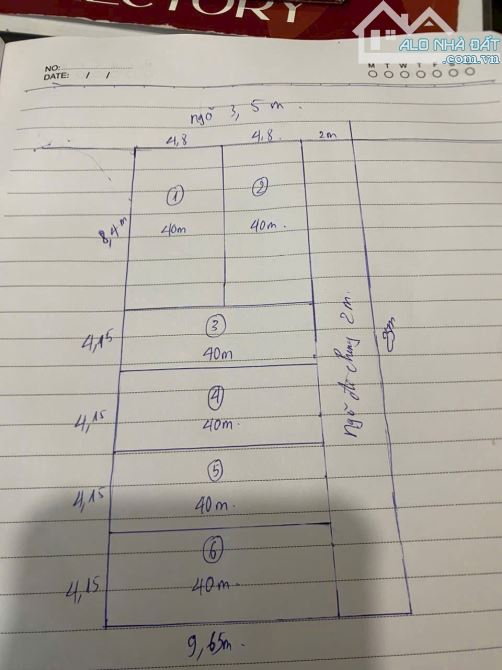 RECTORY
ALO NHÀ ĐẤT
.com.vn
NO:
DATE: / /
M T W T F S S
ngõ 3,5m.
4,8 4,8. 2m
① ②
8,4m 40m 40m.
③
4,15 40m.
④
4,15 40m.
ngõ đi chung 2m.
⑤
4,15 40m.
⑥
4,15 40m.
9,65m.